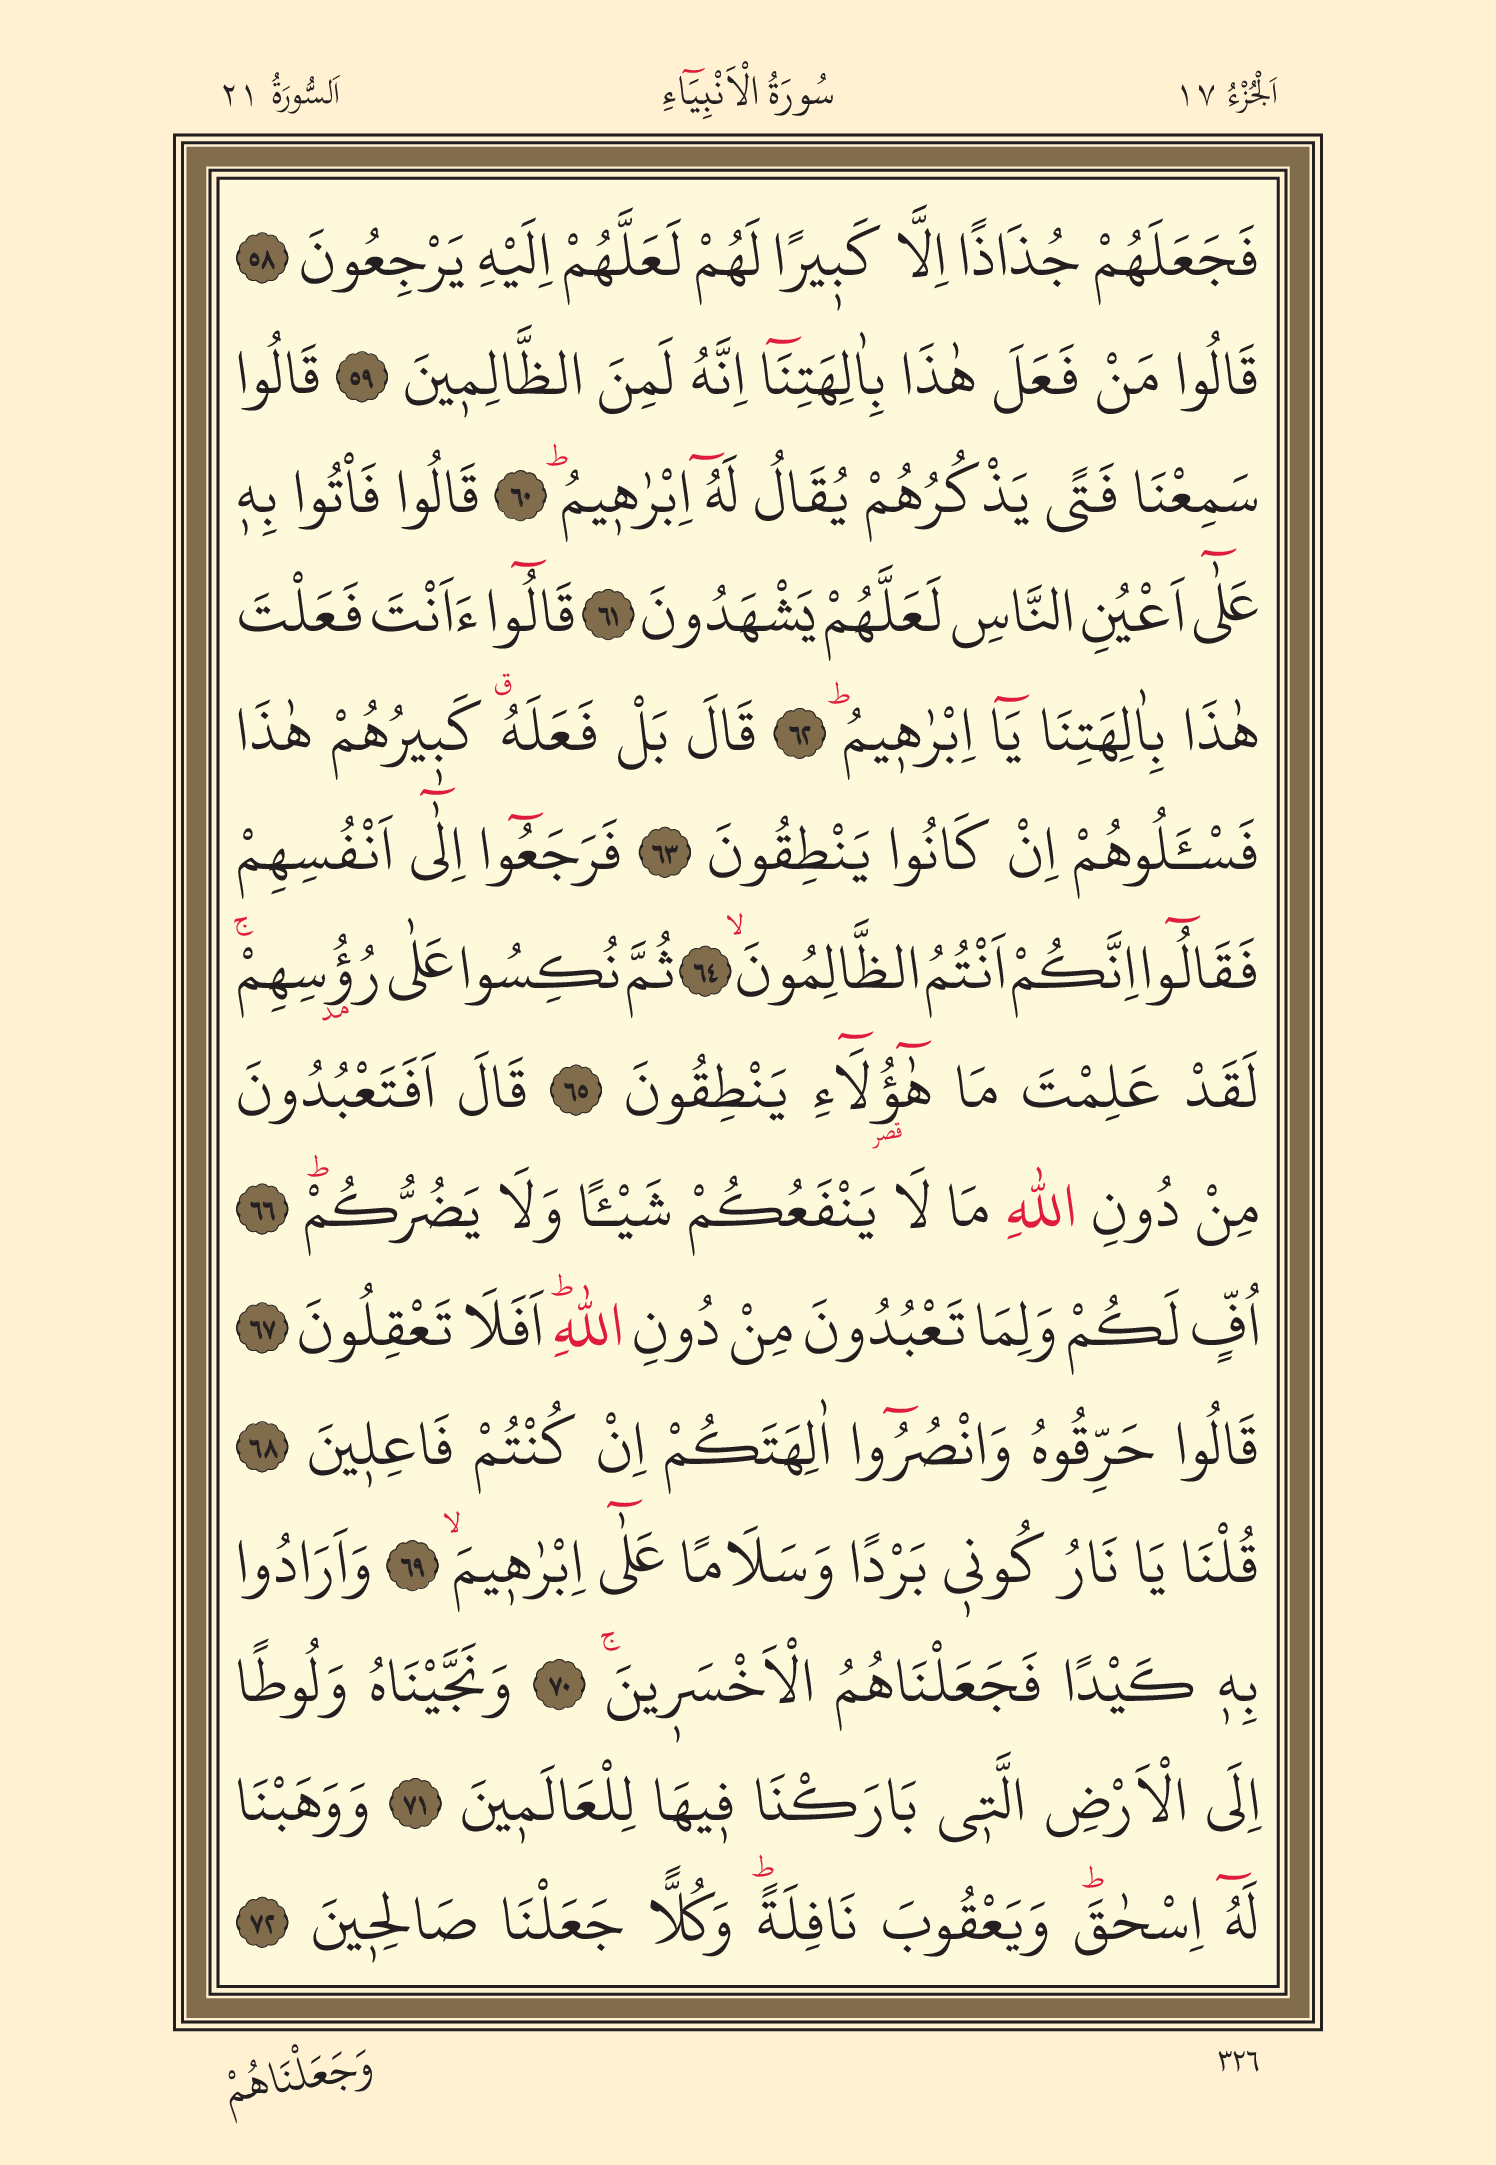 اَلْجُزْءُ ١٧ سُورَةُ الْاَنْبِيَٓاءِ اَلسُّورَةُ ٢١
فَجَعَلَهُمْ جُذَاذًا اِلَّا كَبٖيرًا لَهُمْ لَعَلَّهُمْ اِلَيْهِ يَرْجِعُونَ ٥٨
قَالُوا مَنْ فَعَلَ هٰذَا بِاٰلِهَتِنَٓا اِنَّهُ لَمِنَ الظَّالِمٖينَ ٥٩ قَالُوا
سَمِعْنَا فَتًى يَذْكُرُهُمْ يُقَالُ لَهُٓ اِبْرٰهٖيمُۜ ٦٠ قَالُوا فَاْتُوا بِهٖ
عَلٰٓى اَعْيُنِ النَّاسِ لَعَلَّهُمْ يَشْهَدُونَ ٦١ قَالُٓوا ءَاَنْتَ فَعَلْتَ
هٰذَا بِاٰلِهَتِنَا يَٓا اِبْرٰهٖيمُۜ ٦٢ قَالَ بَلْ فَعَلَهُࣗ كَبٖيرُهُمْ هٰذَا
فَسْـَٔلُوهُمْ اِنْ كَانُوا يَنْطِقُونَ ٦٣ فَرَجَعُٓوا اِلٰٓى اَنْفُسِهِمْ
فَقَالُٓوا اِنَّكُمْ اَنْتُمُ الظَّالِمُونَۙ ٦٤ ثُمَّ نُكِسُوا عَلٰى رُؤُسِهِمْۚ
لَقَدْ عَلِمْتَ مَا هٰٓؤُ۬لَٓاءِ يَنْطِقُونَ ٦٥ قَالَ اَفَتَعْبُدُونَ
مِنْ دُونِ اللّٰهِ مَا لَا يَنْفَعُكُمْ شَيْـًٔا وَلَا يَضُرُّكُمْۜ ٦٦
اُفٍّ لَكُمْ وَلِمَا تَعْبُدُونَ مِنْ دُونِ اللّٰهِۜ اَفَلَا تَعْقِلُونَ ٦٧
قَالُوا حَرِّقُوهُ وَانْصُرُٓوا اٰلِهَتَكُمْ اِنْ كُنْتُمْ فَاعِلٖينَ ٦٨
قُلْنَا يَا نَارُ كُونٖى بَرْدًا وَسَلَامًا عَلٰٓى اِبْرٰهٖيمَۙ ٦٩ وَاَرَادُوا
بِهٖ كَيْدًا فَجَعَلْنَاهُمُ الْاَخْسَرٖينَۚ ٧٠ وَنَجَّيْنَاهُ وَلُوطًا
اِلَى الْاَرْضِ الَّتٖى بَارَكْنَا فٖيهَا لِلْعَالَمٖينَ ٧١ وَوَهَبْنَا
لَهُٓ اِسْحٰقَۜ وَيَعْقُوبَ نَافِلَةًۜ وَكُلًّا جَعَلْنَا صَالِحٖينَ ٧٢
٣٢٦ وَجَعَلْنَاهُمْ